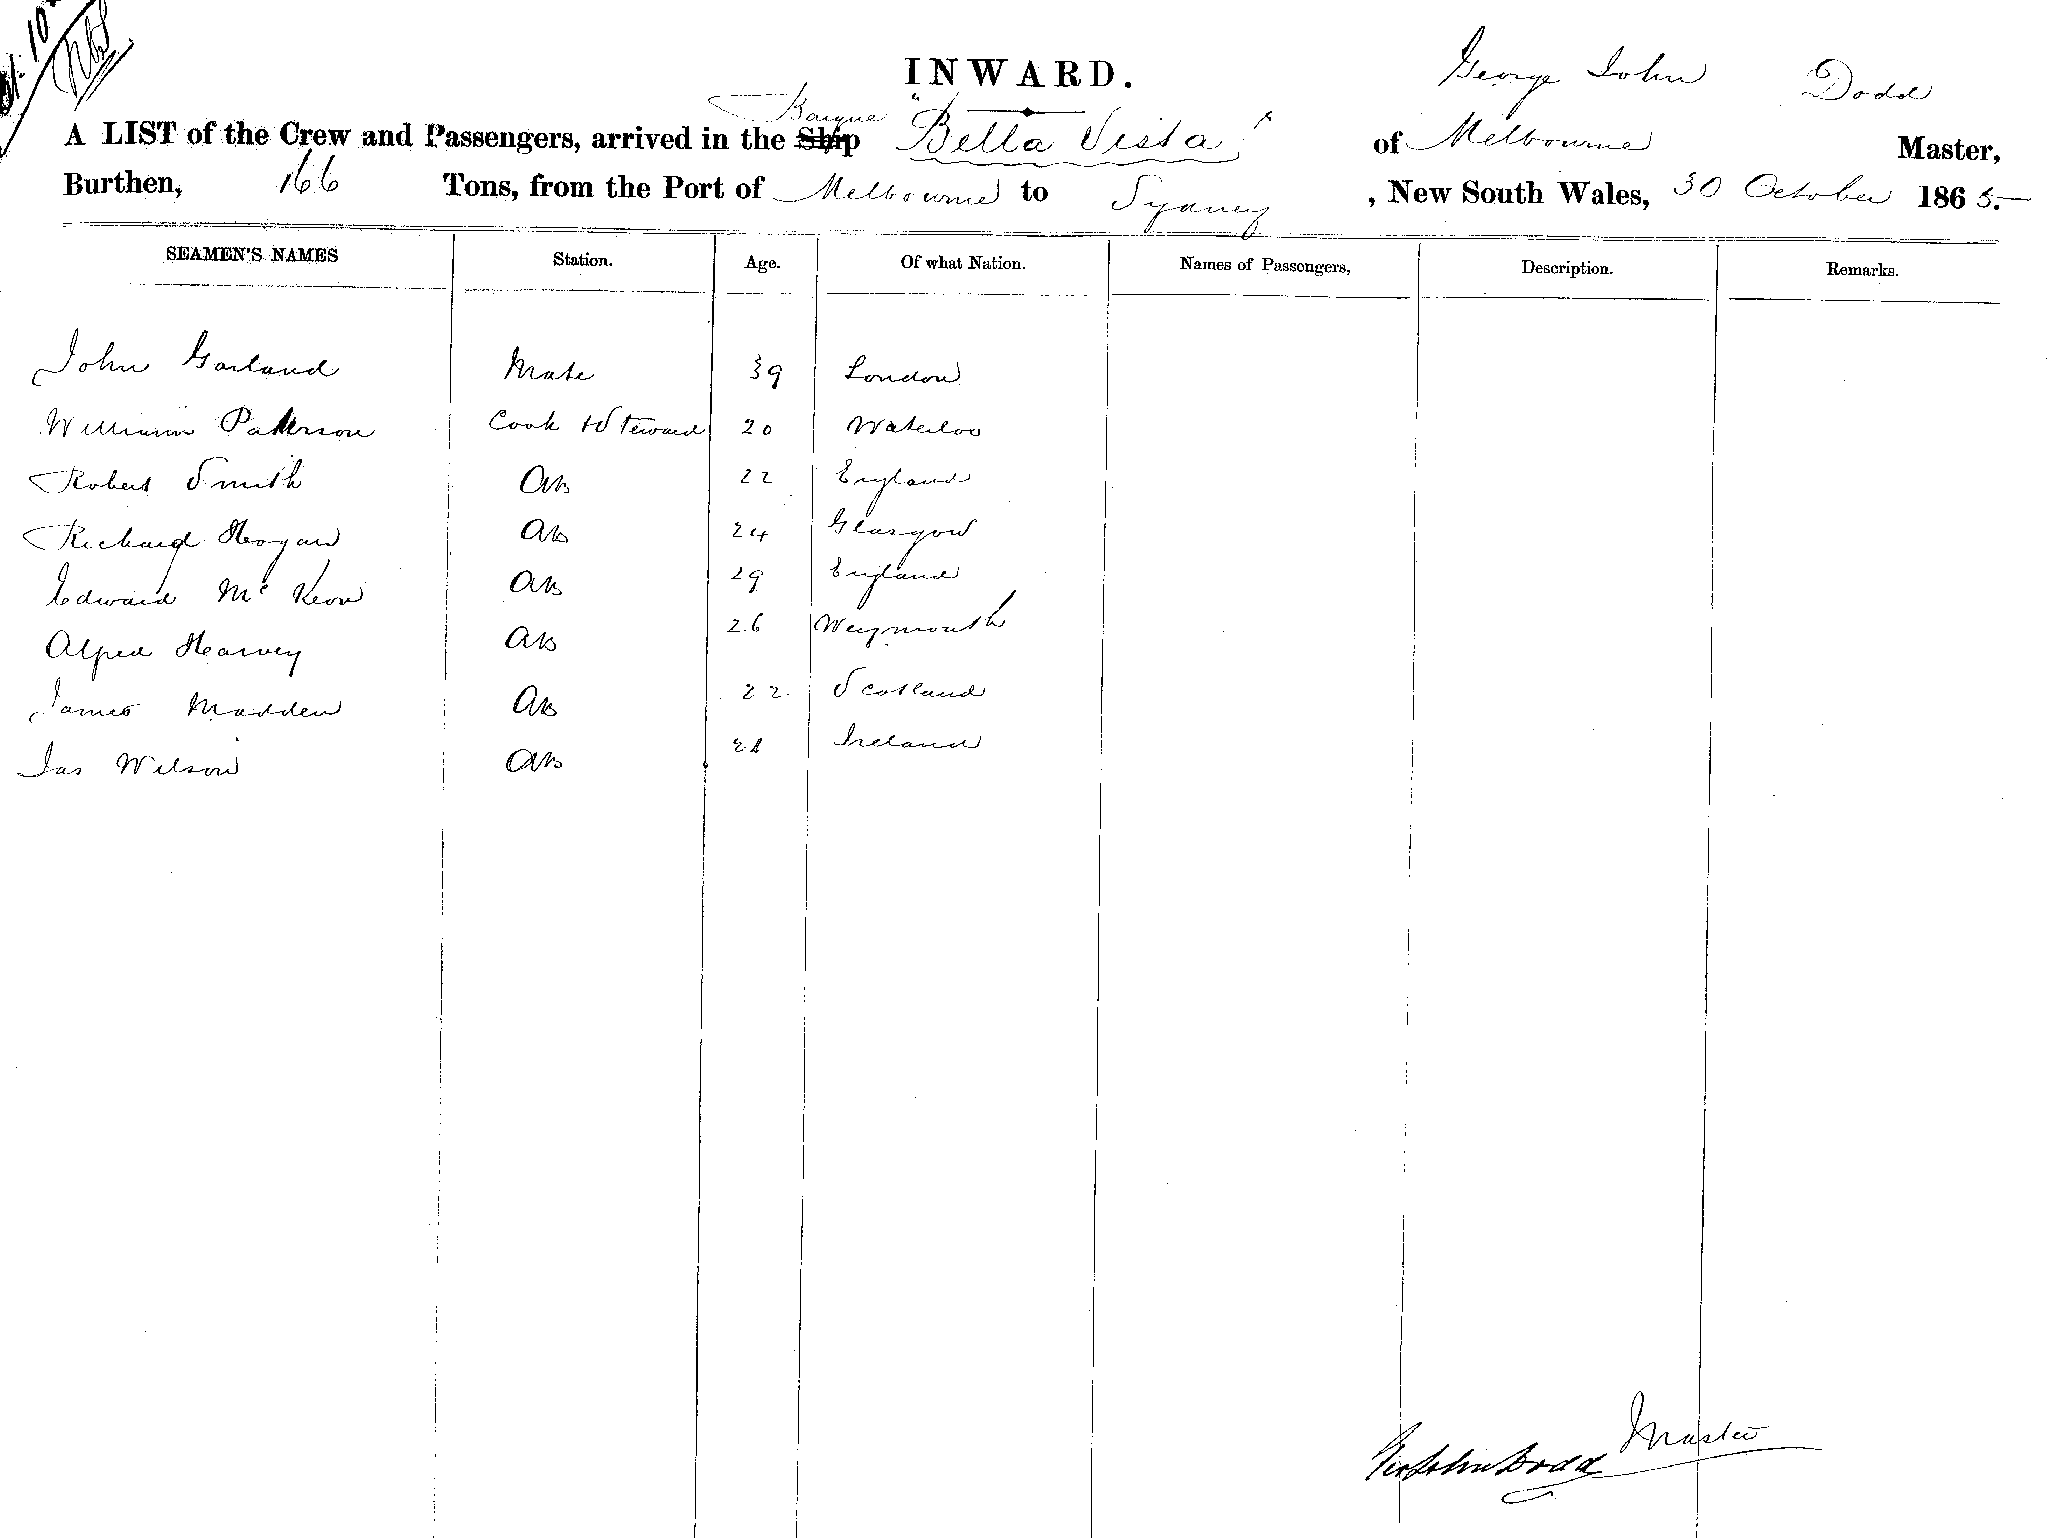 INWARD.
George John Dodd
Barque
A LIST of the Crew and Passengers, arrived in the Ship "Bella Vista" of Melbourne Master,
Burthen, 166 Tons, from the Port of Melbourne to Sydney, New South Wales, 30 October 1865.
SEAMEN'S NAMES Station. Age. Of what Nation. Names of Passengers, Description. Remarks.
John Garland Mate 39 London
William Patterson Cook & Steward 20 Waterloo
Robert Smith AB 22 England
Richard Hogan AB 24 Glasgow
Edward McKeon AB 29 England
Alfred Harvey AB 26 Weymouth
James Madden AB 22 Scotland
Jas Wilson AB Ireland
Geo John Dodd Master